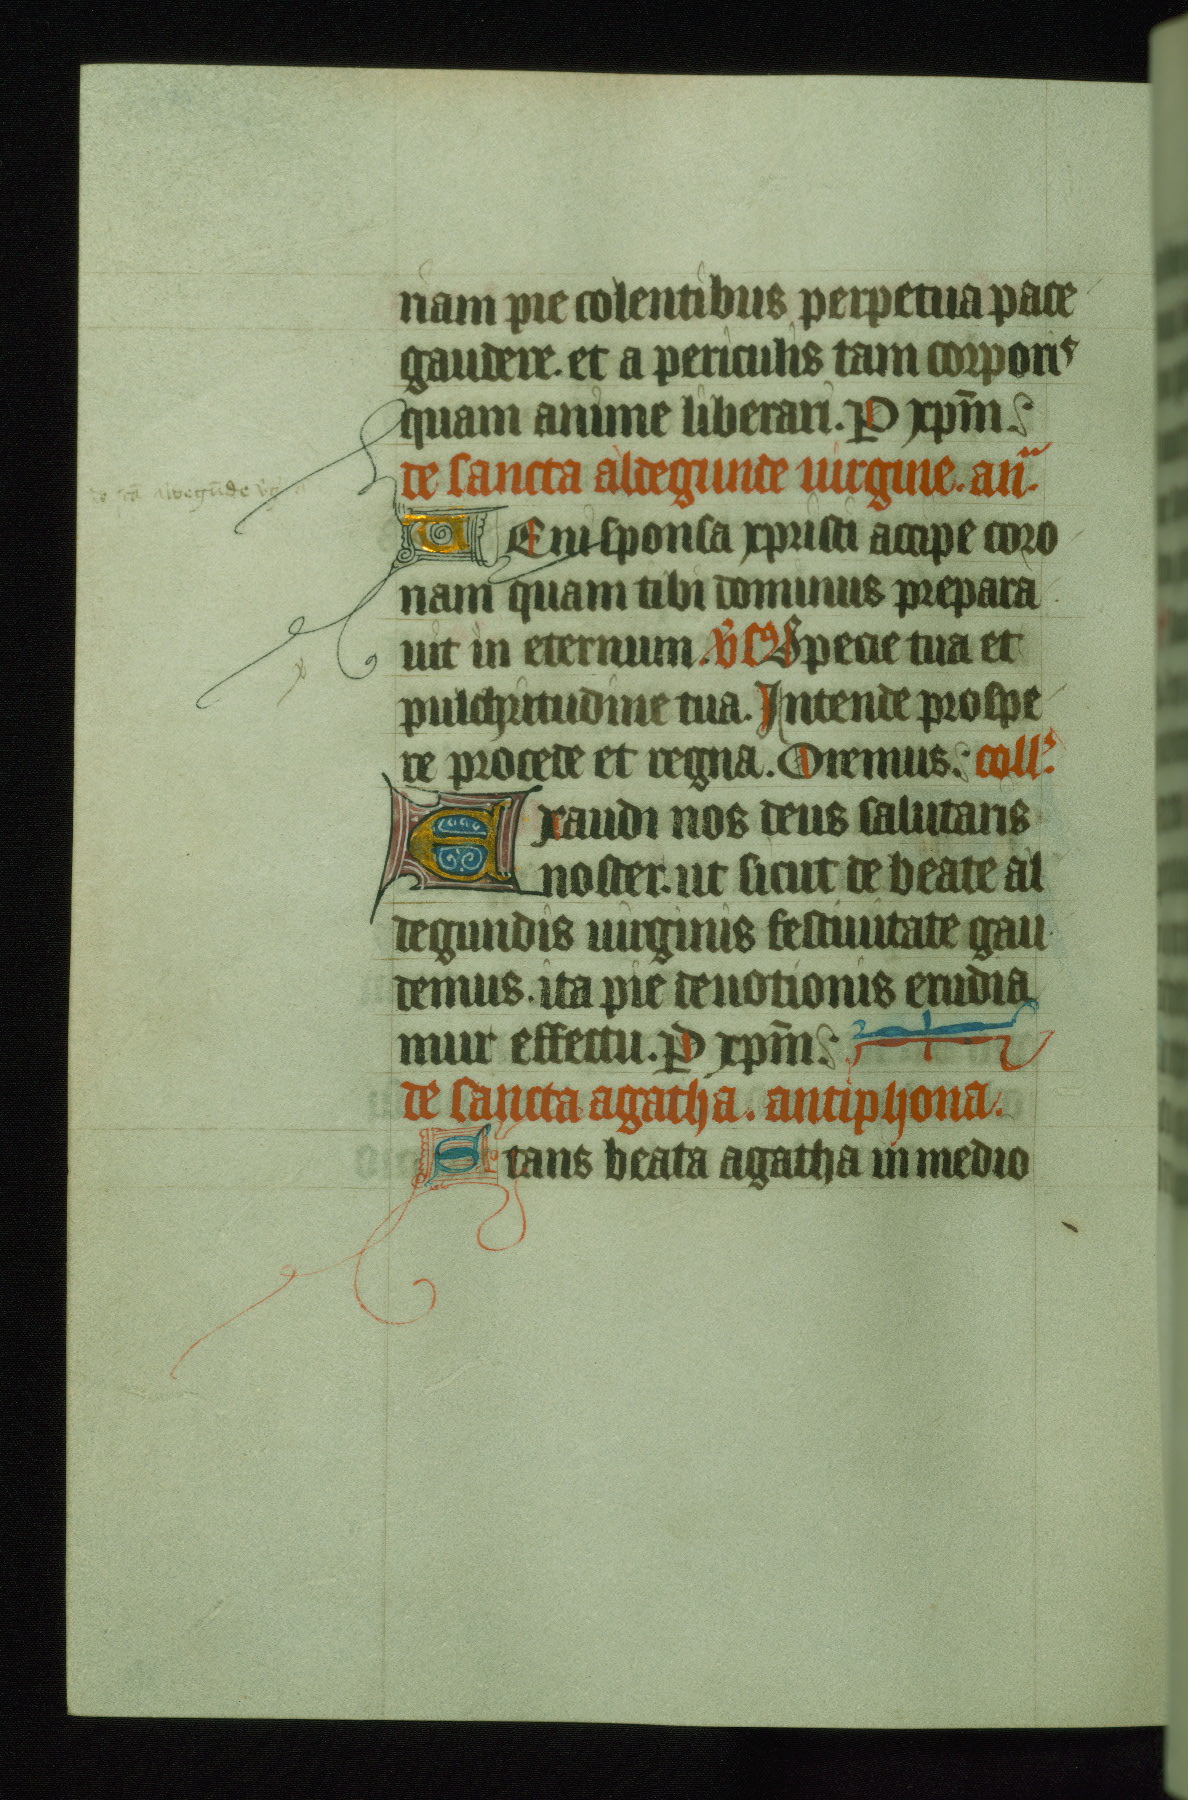 nam pie colentibus perpetua pace
gaudere. et a periculis tam corporis
quam anime liberari. P xp̄m
de sancta aldegunde uirgine. an̄.
VEni sponsa xpristi accipe coro
nam quam tibi dominus prepara
uit in eternum. Specie tua et
pulchritudine tua. Intende prospe
re procede et regna. Oremus. coll'.
Exaudi nos deus salutaris
noster. ut sicut de beate al
degundis uirginis festiuitate gau
demus. ita pie deuotionis erudia
mur effectu. P xp̄m
de sancta agatha. antiphona.
Stans beata agatha in medio